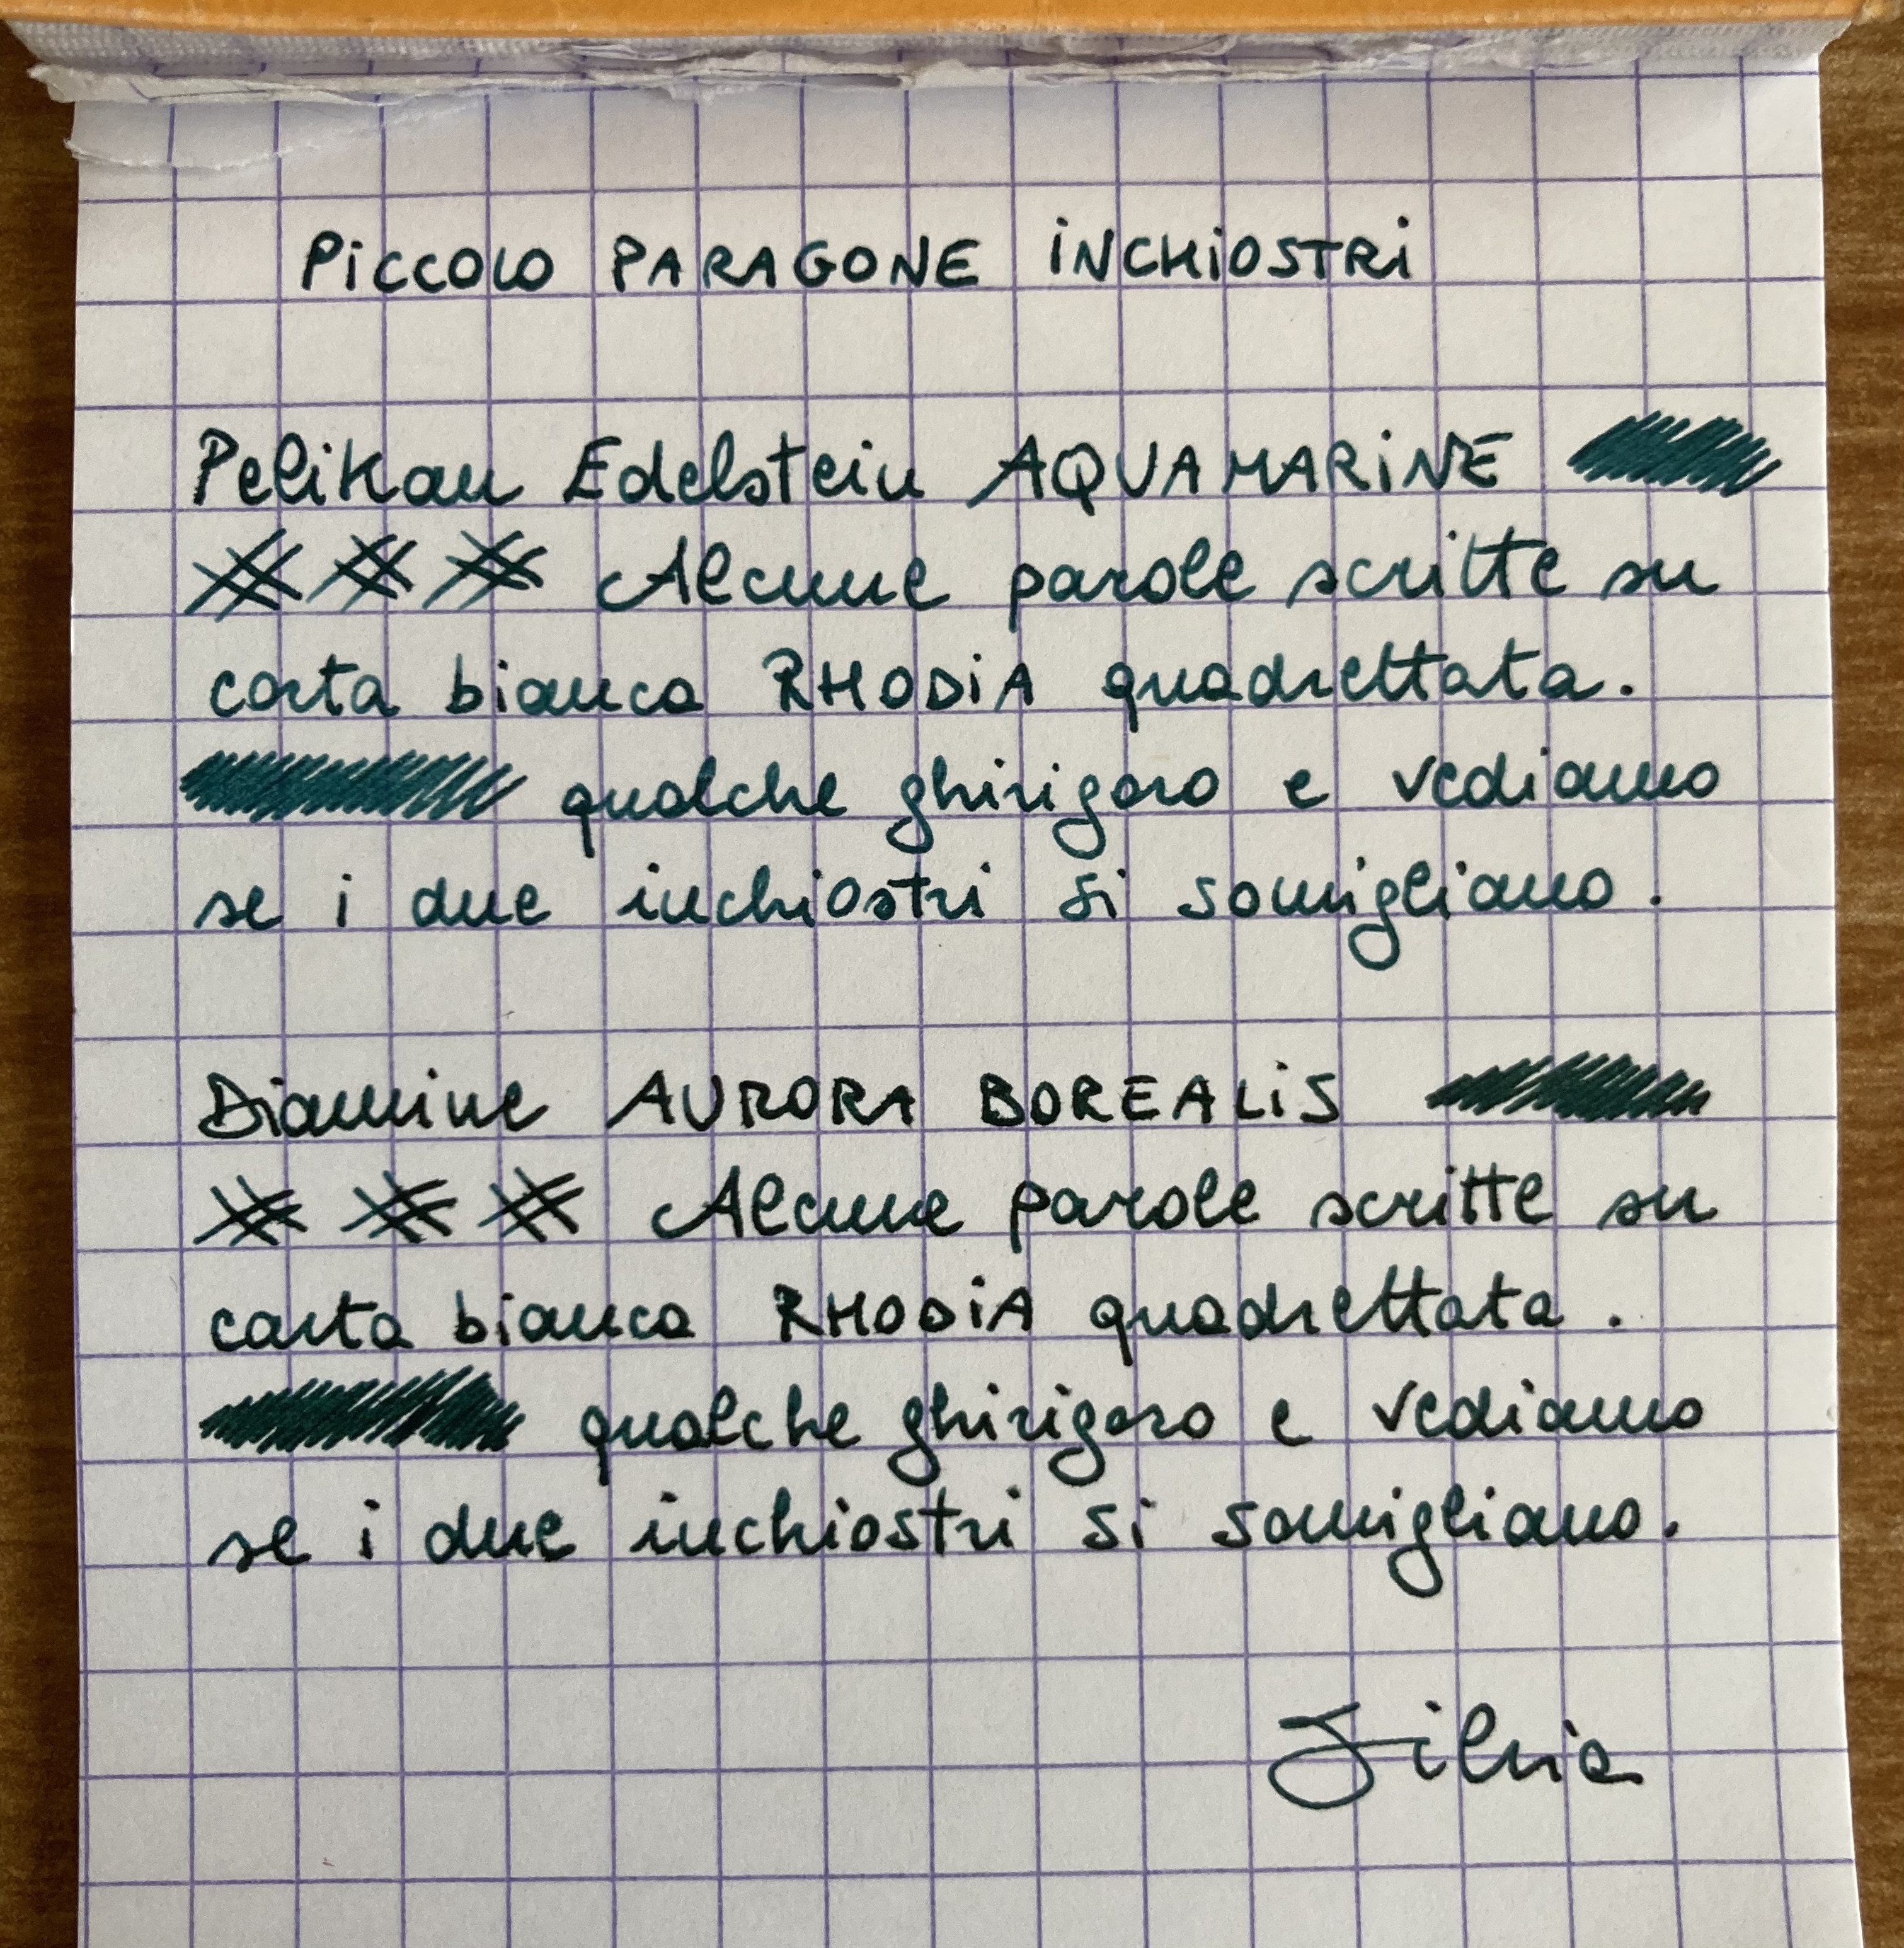 PiCCOLO PARAGONE iNCHiOSTRi
Pelikan Edelstein AQUAMARiNE
Alcune parole scritte su
carta bianca RHODiA quadrettata.
qualche ghirigoro e vediamo
se i due inchiostri si somigliano.
Diamine AURORA BOREALiS
Alcune parole scritte su
carta bianca RHODiA quadrettata.
qualche ghirigoro e vediamo
se i due inchiostri si somigliano.
Silvia